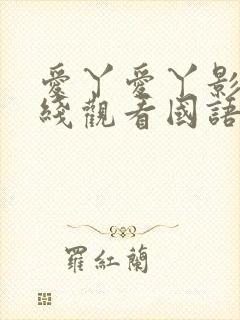 愛丫愛丫影
綫觀看國語
羅紅蘭